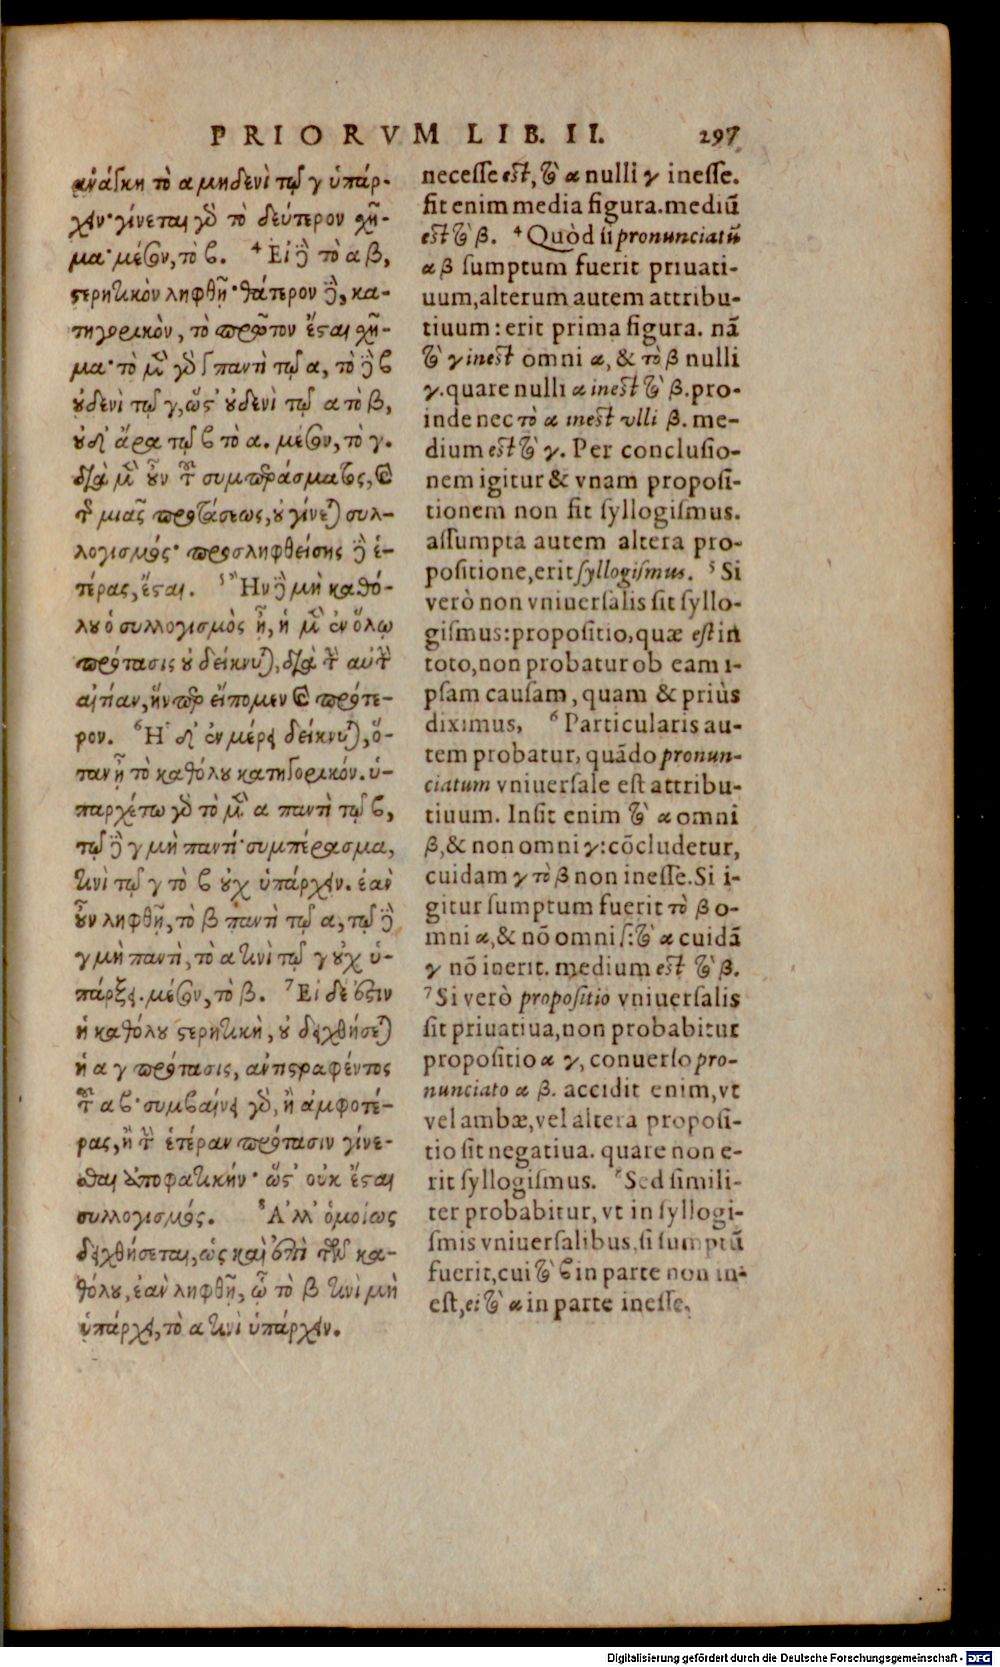 PRIORVM LIB. II. 297
ἀνάγκη τὸ α μηδενὶ τῷ γ ὑπάρ-
χειν· γίνεται γὸ τὸ δεύτερον χῆ-
μα· μέσον, τὸ ϐ. ⁴ Εἰ δὲ τὸ α β,
στερητικὸν ληφθῇ· θάτερον δὲ, κα-
τηγορικὸν, τὸ πρῶτον ἔσται χῆ-
μα· τὸ μὲν γὸ γ παντὶ τῷ α, τὸ δὲ ϐ
οὐδενὶ τῷ γ, ὥστ' οὐδενὶ τῷ α τὸ β,
οὐδ' ἄρα τῷ ϐ τὸ α. μέσον, τὸ γ.
διὰ μὲν οὖν τοῦ συμπεράσματος, καὶ
τῆς μιᾶς προτάσεως, οὐ γίνεται συλ-
λογισμός· προσληφθείσης δὲ ἑ-
τέρας, ἔσται. ⁵ Ἢν δὲ μὴ καθό-
λου ὁ συλλογισμὸς ᾖ, ἡ μὲν ἐν ὅλῳ
πρότασις οὐ δείκνυται, διὰ τὴν αὐτὴν
αἰτίαν, ἥνπερ εἴπομεν καὶ πρότε-
ρον. ⁶ Ἡ δ' ἐν μέρει δείκνυται, ὅ-
ταν ᾖ τὸ καθόλου κατηγορικόν. ὑ-
παρχέτω γὸ τὸ μὲν α παντὶ τῷ ϐ,
τῷ δὲ γ μὴ παντί· συμπέρασμα,
τινὶ τῷ γ τὸ ϐ οὐχ ὑπάρχειν. ἐὰν
οὖν ληφθῇ, τὸ β παντὶ τῷ α, τῷ δὲ
γ μὴ παντὶ, τὸ α τινὶ τῷ γ οὐχ ὑ-
πάρξει. μέσον, τὸ β. ⁷ Εἰ δέ ἐστιν
ἡ καθόλου στερητικὴ, οὐ δειχθήσεται
ἡ α γ πρότασις, ἀντιστραφέντος
τοῦ α ϐ· συμβαίνει γὸ, ἢ ἀμφοτέ-
ρας, ἢ τὴν ἑτέραν πρότασιν γίνε-
σθαι ἀποφατικήν· ὥστ' οὐκ ἔσται
συλλογισμός. ⁸ Ἀλλ' ὁμοίως
δειχθήσεται, ὡς καὶ ἐπὶ τῶν κα-
θόλου, ἐὰν ληφθῇ, ᾧ τὸ β τινὶ μὴ
ὑπάρχει, τὸ α τινὶ ὑπάρχειν.
necesse est, τὸ α nulli γ inesse.
fit enim media figura. mediũ
est τὸ β. ⁴ Quòd ii pronunciatũ
α β sumptum fuerit priuati-
uum, alterum autem attribu-
tiuum: erit prima figura. nã
τὸ γ inest omni α, & τὸ β nulli
γ. quare nulli α inest τὸ β. pro-
inde nec τὸ α inest vlli β. me-
dium est τὸ γ. Per conclusio-
nem igitur & vnam proposi-
tionem non fit syllogismus.
assumpta autem altera pro-
positione, erit syllogismus. ⁵ Si
verò non vniuersalis sit syllo-
gismus: propositio, quæ est in
toto, non probatur ob eam i-
psam causam, quam & priùs
diximus, ⁶ Particularis au-
tem probatur, quãdo pronun-
ciatum vniuersale est attribu-
tiuum. Insit enim τὸ α omni
β, & non omni γ: cõcludetur,
cuidam γ τὸ β non inesse. Si i-
gitur sumptum fuerit τὸ β o-
mni α, & nõ omni γ: τὸ α cuidã
γ nõ inerit. medium est τὸ β.
⁷ Si verò propositio vniuersalis
sit priuatiua, non probabitur
propositio α γ, conuerso pro-
nunciato α β. accidit enim, vt
vel ambæ, vel altera proposi-
tio sit negatiua. quare non e-
rit syllogismus. ⁸ Sed simili-
ter probabitur, vt in syllogi-
smis vniuersalibus, si sumptũ
fuerit, cui τὸ ϐ in parte non in-
est, ei τὸ α in parte inesse.
Digitalisierung gefördert durch die Deutsche Forschungsgemeinschaft - DFG